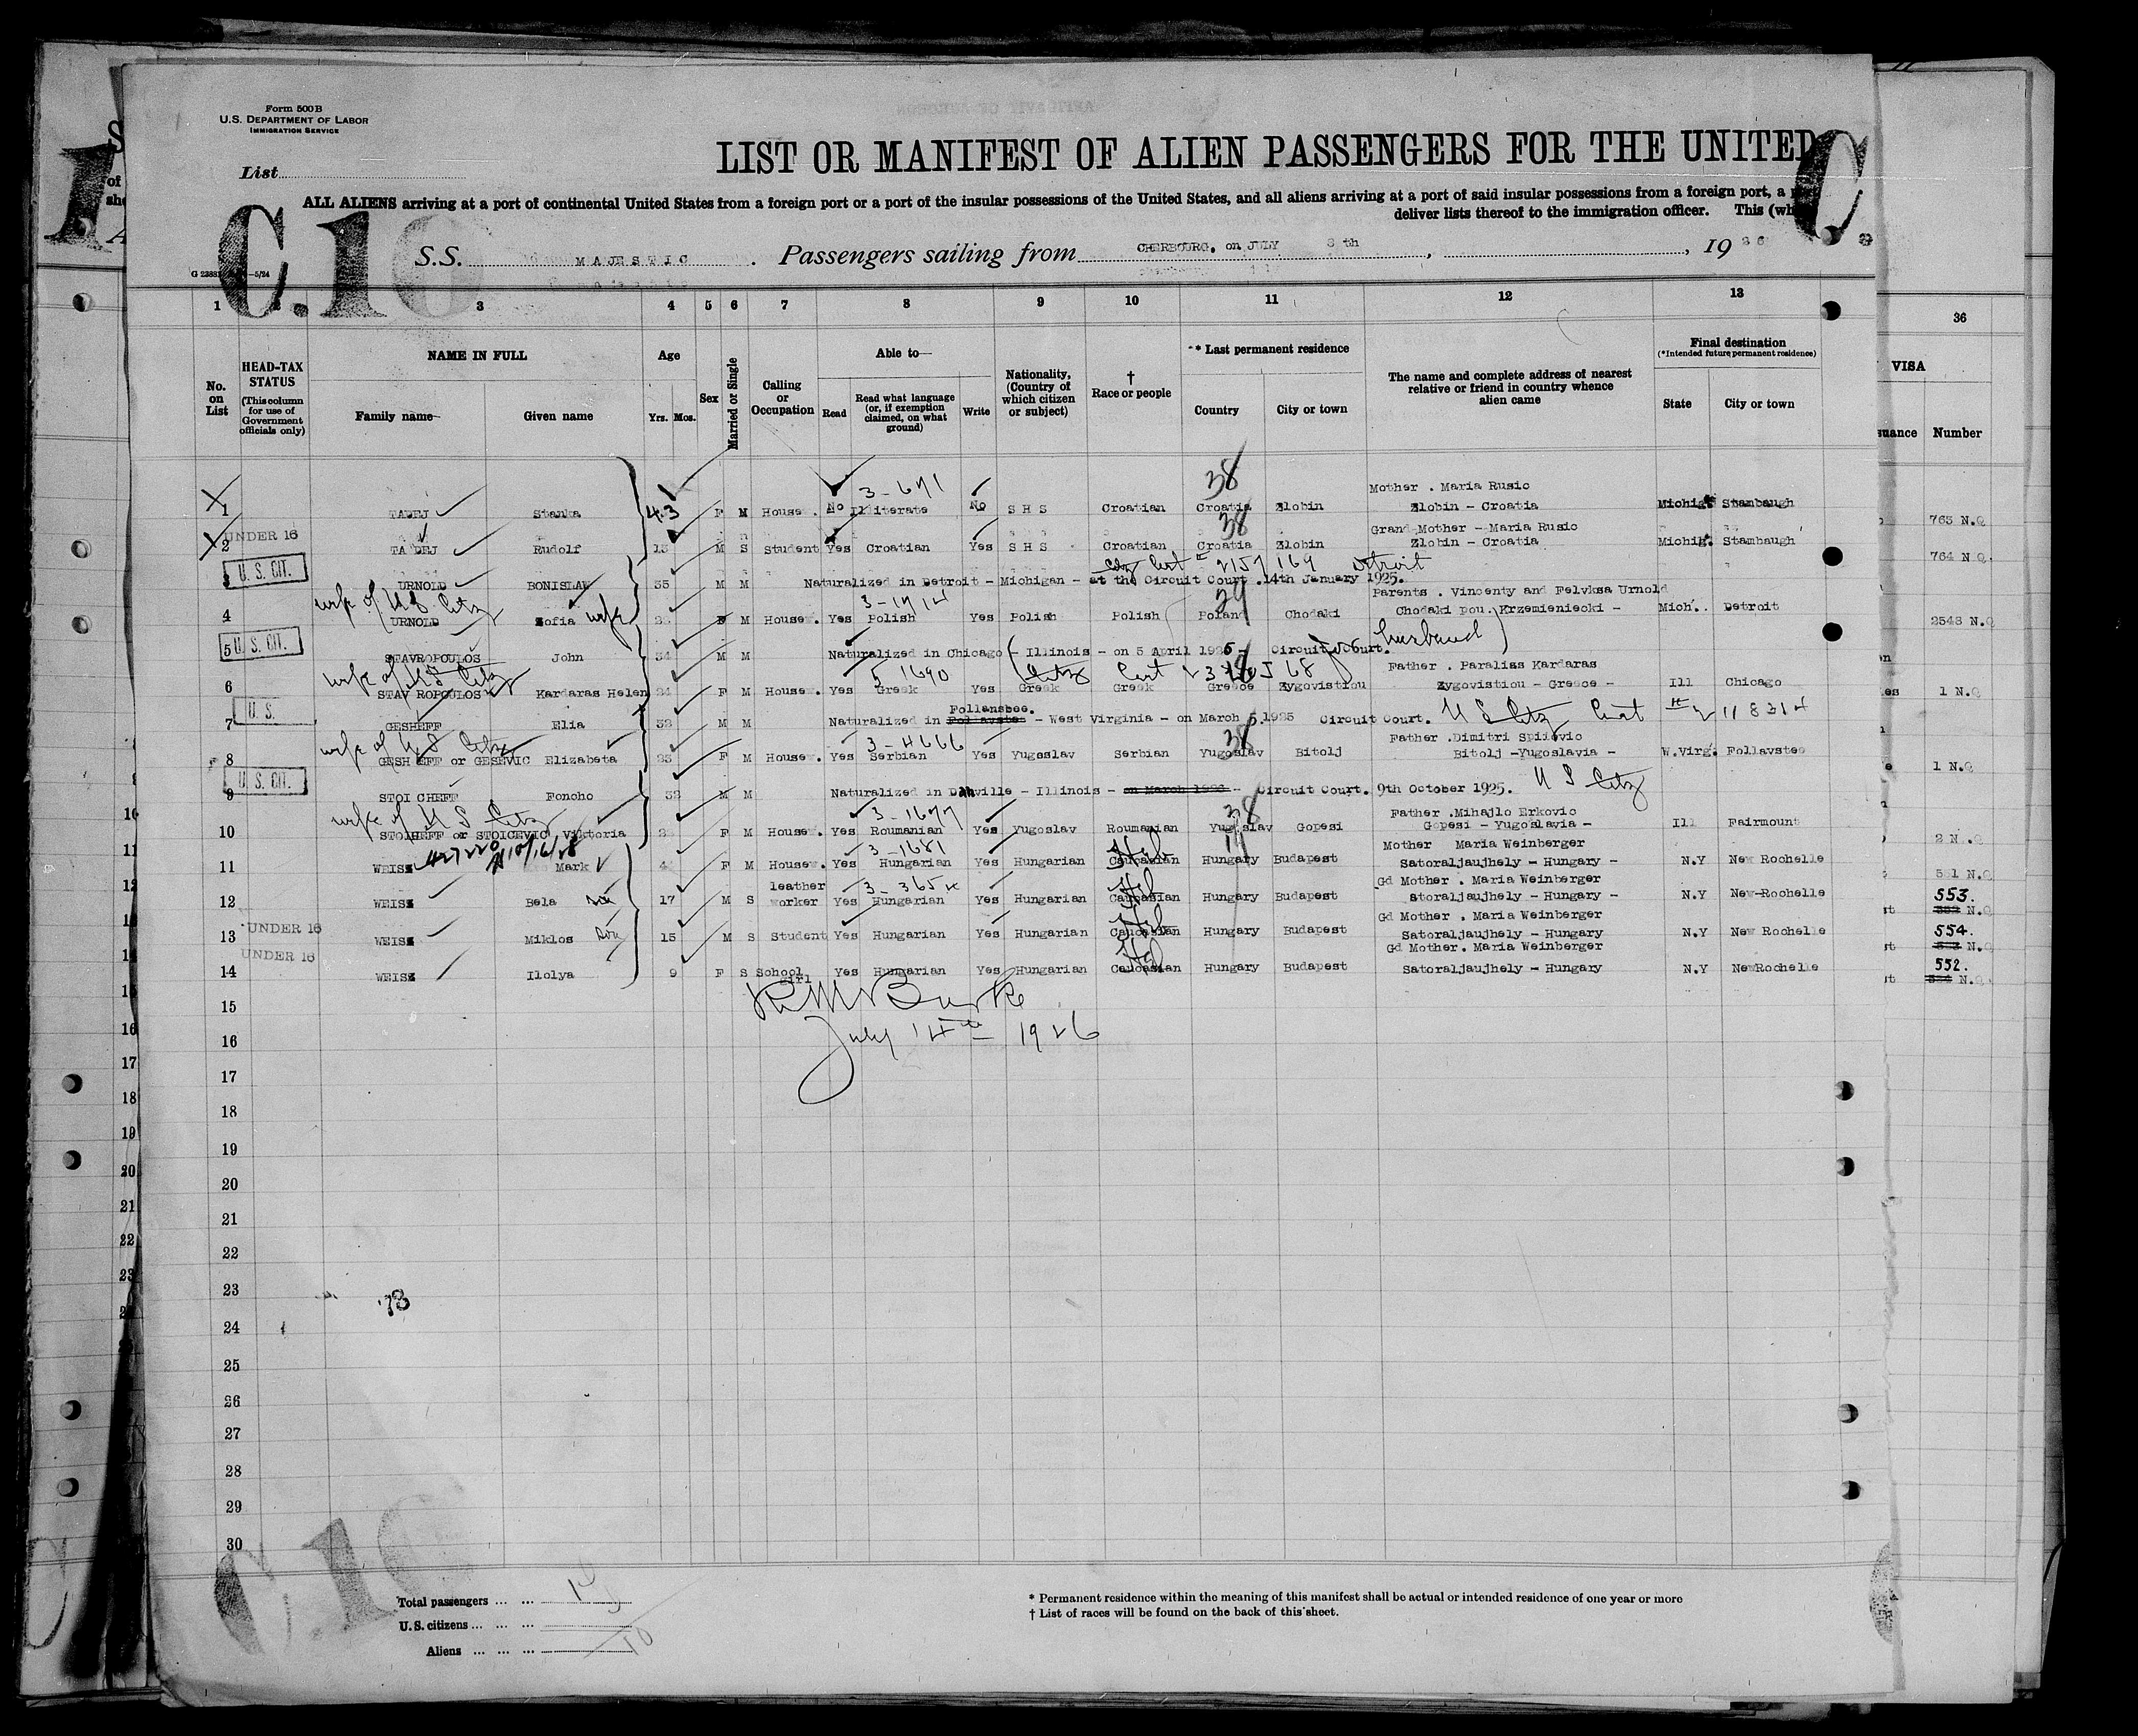 Form 500B
U.S. DEPARTMENT OF LABOR
IMMIGRATION SERVICE
List
LIST OR MANIFEST OF ALIEN PASSENGERS FOR THE UNITED
ALL ALIENS arriving at a port of continental United States from a foreign port or a port of the insular possessions of the United States, and all aliens arriving at a port of said insular possessions from a foreign port, a
deliver lists thereof to the immigration officer. This (wh
C.1
C.
S.S. MAJESTIC. Passengers sailing from CHERBOURG. on JULY 8 th, 1926
1 2 3 4 5 6 7 8 9 10 11 12 13 36
No. on List
HEAD-TAX STATUS (This column for use of Government officials only)
NAME IN FULL
Family name Given name
Age
Yrs. Mos.
Sex
Married or Single
Calling or Occupation
Able to—
Read
Read what language (or, if exemption claimed, on what ground)
Write
Nationality, (Country of which citizen or subject)
† Race or people
* Last permanent residence
Country City or town
The name and complete address of nearest relative or friend in country whence alien came
Final destination
(*Intended future permanent residence)
State City or town
VISA
suance Number
3-671 38 Mother . Maria Rusic
1 TADEJ Stanka 43 F M House . No Illiterate No S H S Croatian Croatia Zlobin Zlobin - Croatia Michig. Stambaugh 763 N.Q
UNDER 16 38 Grand Mother - Maria Rusic
2 TADEJ Rudolf 13 M S Student Yes Croatian Yes S H S Croatian Croatia Zlobin Zlobin - Croatia Michig. Stambaugh 764 N Q.
U. S. CIT. Detroit
3 URNOLD BONISLAW 35 M M Naturalized in Detroit - Michigan - at the Circuit Court .14th January 1925.
wife of U S Citz 3-1714 Parents . Vincenty and Felyksa Urnold
4 URNOLD Zofia wife F M House. Yes Polish Yes Polish Polish Poland Chodaki Chodaki pou. Krzemieniecki - Mich. Detroit 2548 N.Q
U. S. CIT. husband
5 STAVROPOULOS John 34 M M Naturalized in Chicago - Illinois - on 5 April 1926 - Circuit Court.
wife of U S Citz 5 1690 Citz Cert Father . Paralias Kardaras
6 STAV ROPOULOS Kardaras Helen F M House. Yes Greek Yes Greek Greek Greece Zygovistiou Zygovistiou - Greece - Ill Chicago 1 N.Q
U. S. Follansbee.
7 GESHEFF Elia 32 M M Naturalized in Follavste - West Virginia - on March 5.1925 Circuit Court. U S Citz Cert 2118314
wife of U S Citz 3-4666 38 Father .Dimitri Spirovic
8 GESH EFF or GESEVIC Elizabeta F M House. Yes Serbian Yes Yugoslav Serbian Yugoslav Bitolj Bitolj -Yugoslavia - W.Virg. Follavstee 1 N.Q
U. S. CIT.
9 STOI CHEFF Foncho 32 M M Naturalized in Danville - Illinois - on March 1923 - Circuit Court. 9th October 1925. U S Citz
wife of U S Citz 3-1677 38 Father .Mihajlo Erkovic
10 STOICHEFF or STOICEVIC Viktoria F M House. Yes Roumanian Yes Yugoslav Roumanian Yugoslav Gopesi Gopesi - Yugoslavia - Ill Fairmount 2 N.Q
427220 10/16/28 3-1681 Mother Maria Weinberger
11 WEISZ Mark F M House. Yes Hungarian Yes Hungarian Caucasian Heb Hungary Budapest Satoraljaujhely - Hungary - N.Y New Rochelle 551 N.Q
leather Gd Mother . Maria Weinberger
12 WEISZ Bela son 17 M S worker Yes Hungarian Yes Hungarian Caucasian Heb Hungary Budapest Satoraljaujhely - Hungary - N.Y New-Rochelle 553. N.Q
UNDER 16 Gd Mother . Maria Weinberger
13 WEISZ Miklos son 15 M S Student Yes Hungarian Yes Hungarian Caucasian Heb Hungary Budapest Satoraljaujhely - Hungary N.Y New Rochelle 554. N.Q
UNDER 16 Gd Mother. Maria Weinberger
14 WEISZ Ilolya 9 F S School girl Yes Hungarian Yes Hungarian Caucasian Heb Hungary Budapest Satoraljaujhely - Hungary N.Y NewRochelle 552. N.Q
15 RM Burke
16 July 14th 1926
17
18
19
20
21
22
23
24
25
26
27
28
29
30
Total passengers ... ... 14
U.S. citizens ... ... ...
Aliens ... ... ... 10
* Permanent residence within the meaning of this manifest shall be actual or intended residence of one year or more
† List of races will be found on the back of this sheet.